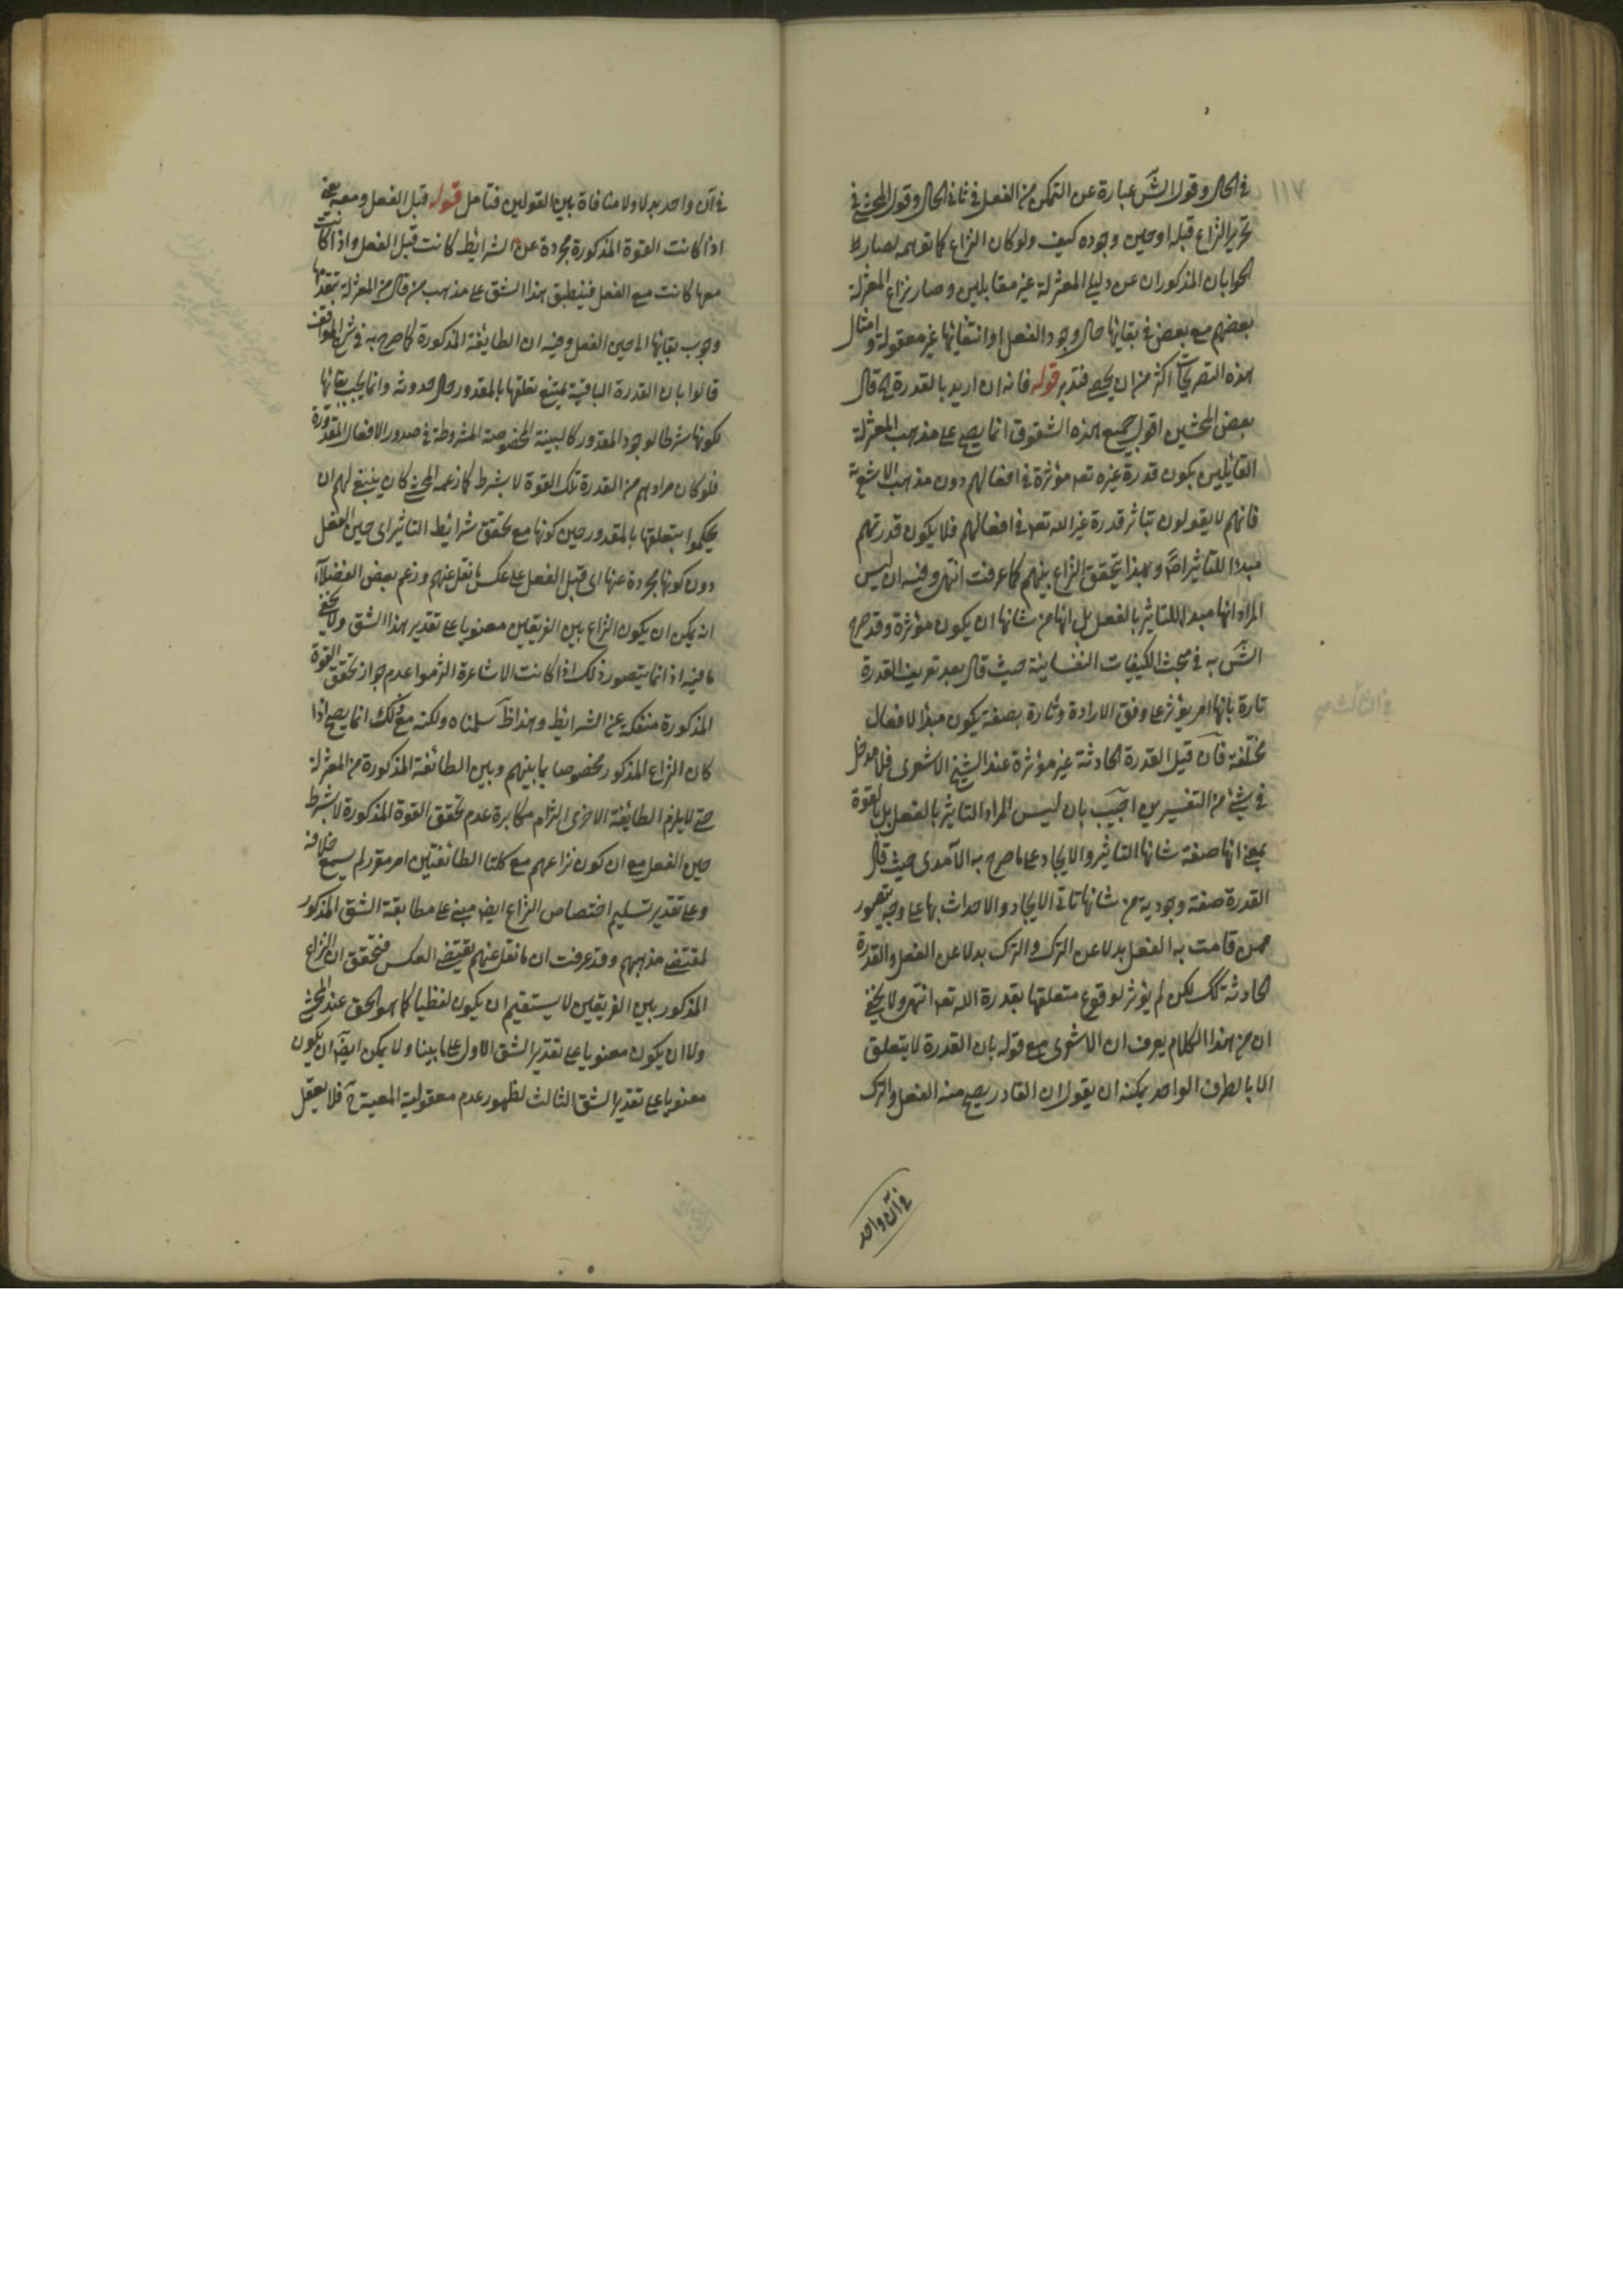 ١١٧
في الحال وقول الشَّ عبارة عن التمكن من الفعل في ثاني الحال وقول المحشي في
تحرير النزاع قبله او حين وجوده كيف ولو كان النزاع كما توهمه لصار
الجوابان المذكوران عن دليل المعتزلة غير مقابلين وصار نزاع المعتزلة
بعضهم مع بعض في بقائها حال وجود الفعل او انتفائها غير معقولة وامثال
هذه التصريحات اكثر من ان يحصى فتدبر قوله فانه ان اريد بالقدرة قال
بعض المحشين اقول جميع هذه الشقوق انما يصح على مذهب المعتزلة
القائلين بكون قدرة غيره تعه مؤثرة في افعالهم دون مذهب الاشعرية
فانهم لا يقولون بتاثر قدرة غير الله تعه في افعالهم فلا يكون قدرتهم
مبدأ للتاثير اصلا وبهذا يتحقق النزاع بينهم كما عرفت انتهى وفيه ان ليس
المراد انها مبدا للتاثير بالفعل بل انها من شانها ان يكون مؤثرة وقد صرح
الشَّ به في مبحث الكيفيات النفسانية حيث قال بعد تعريف القدرة
تارة بانها امر يؤثر على وفق الارادة وتارة بصفة يكون مبدأ الافعال
مختلفة فان قيل القدرة الحادثة غير مؤثرة عند الشيخ الاشعرى فلا مدخل
في شئ من التفسيرين اجيب بان ليس المراد التاثير بالفعل بل بالقوة
بمعنى انها صفة شانها التاثير والايجاد على ما صرح به الآمدى حيث قال
القدرة صفة وجودية من شانها تاتي الايجاد والاحداث بها على وجه يتصور
ممن قامت به الفعل بدلا عن الترك والترك بدلا عن الفعل والقدرة
الحادثة كك لكن لم يؤثر لوقوع متعلقها بقدرة الله تعه انتهى ولا يخفى
ان من هذا الكلام يعرف ان الاشعرى مع قوله بان القدرة لا يتعلق
الا بالطرف الواحد يمكنه ان يقول ان القادر يصح منه الفعل والترك
في آن واحد
في آن واحد بدلا ولا منافاة بين القولين فتامل قوله قبل الفعل ومعه يعني
اذا كانت القوة المذكورة مجردة عن الشرايط كانت قبل الفعل واذا كانت
معها كانت مع الفعل فينطبق هذا الشق على مذهب من قال من المعتزلة بتقدمها
وجوب بقائها الى حين الفعل وفيه ان الطايفة المذكورة كما صرح به في شرح المواقف
قالوا بان القدرة الباقية يمتنع تعلقها بالمقدور حال حدوثه وانما يجب بقائها
لكونها شرطا لوجود المقدور كالبينة المخصوصة المشروطة في صدور الافعال المقدورة
فلو كان مرادهم من القدرة تلك القوة لا بشرط كما زعمه المحشي كان ينبغي لهم ان
يحكموا بتعلقها بالمقدور حين كونها مع تحقق شرائط التاثير اى حين الفعل
دون كونها مجردة عنها اى قبل الفعل على عكس ما نقل عنهم وزعم بعض الفضلاء
انه يمكن ان يكون النزاع بين الفريقين معنويا على تقدير هذا الشق ولا يخفى
ما فيه اذ انما يتصور ذلك اذا كانت الاشاعرة التزموا عدم جواز تحقق القوة
المذكورة منفكة عن الشرايط وهذا ظ سلمناه ولكنه مع ذلك انما يصح اذا
كان النزاع المذكور مخصوصا بما بينهم وبين الطائفة المذكورة من المعتزلة
حتى لا يلزم الطايفة الاخرى التزام مكابرة عدم تحقق القوة المذكورة لا بشرط
حين الفعل مع ان كون نزاعهم مع كلتا الطائفتين امر مقرر لم يسمع خلافه
وعلى تقدير تسليم اختصاص النزاع ايضا مبني على مطابقة الشق المذكور
لمقتضى مذهبهم وقد عرفت ان ما نقل عنهم يقتضى العكس فتحقق ان النزاع
المذكور بين الفريقين لا يستقيم ان يكون لفظيا كما هو الحق عند المحشي
ولا ان يكون معنويا على تقدير الشق الاول على ما بينا ولا يمكن ايضا ان يكون
معنويا على تقدير الشق الثالث لظهور عدم معقولية المعية ح فلا يعقل